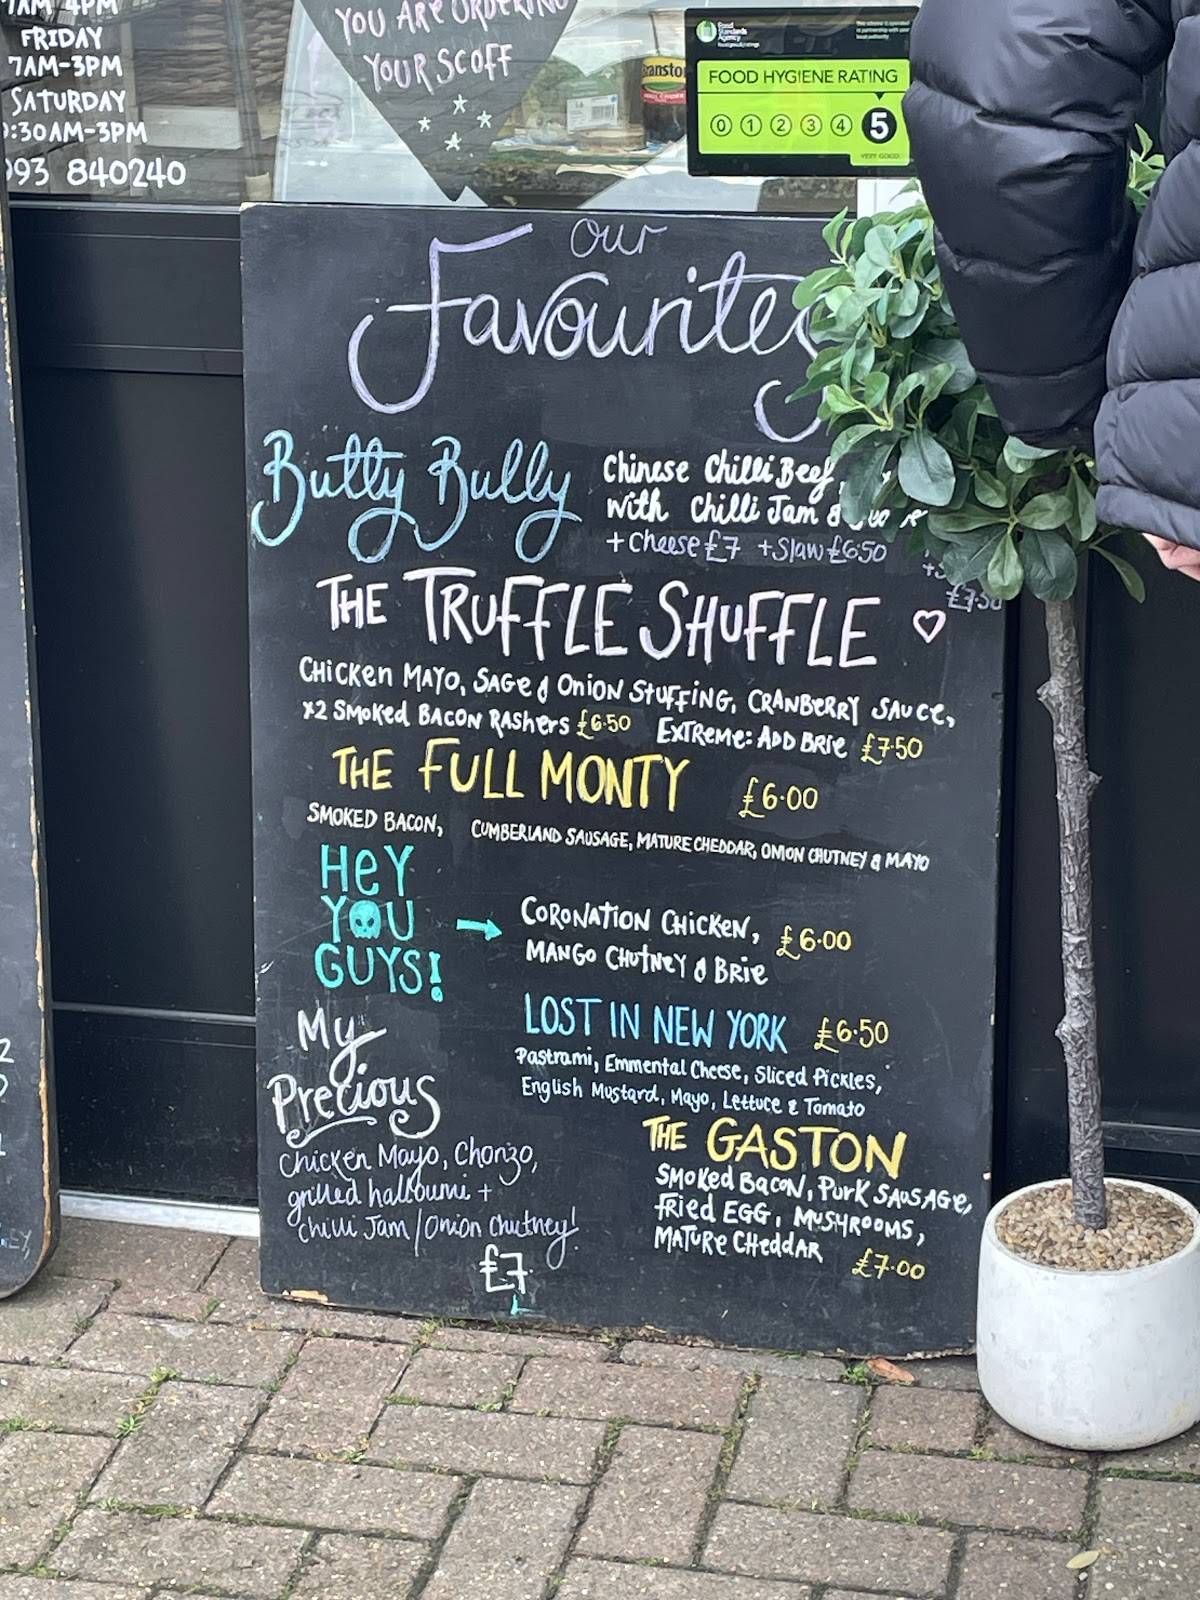 7AM 4PM
FRIDAY
7AM-3PM
SATURDAY
:30AM-3PM
093 840240
YOU ARE ORDERING
YOUR SCOFF
Branston
Food
Standards
Agency
FOOD HYGIENE RATING
0 1 2 3 4 5
VERY GOOD
Our
Favourites
Butty Bully
Chinese Chilli Beef,
with Chilli Jam &
+ Cheese £7 + Slaw £6.50
£7.50
THE TRUFFLE SHUFFLE
CHICKEN MAYO, SAGE & ONION STUFFING, CRANBERRY SAUCE,
x2 SMOKED BACON RASHERS £6.50 EXTREME: ADD BRIE £7.50
THE FULL MONTY £6.00
SMOKED BACON, CUMBERLAND SAUSAGE, MATURE CHEDDAR, ONION CHUTNEY & MAYO
HEY
YOU
GUYS!
CORONATION CHICKEN, £6.00
MANGO CHUTNEY & BRIE
LOST IN NEW YORK £6.50
Pastrami, Emmental Cheese, Sliced Pickles,
English Mustard, Mayo, Lettuce & Tomato
My
Precious
Chicken Mayo, Chorizo,
grilled halloumi +
Chilli Jam/Onion Chutney!
£7
THE GASTON
SMOKED BACON, PORK SAUSAGE,
FRIED EGG, MUSHROOMS,
MATURE CHEDDAR £7.00